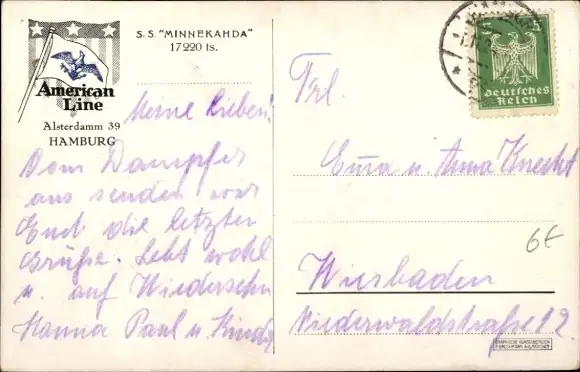 S. S. "MINNEKAHDA"
17220 ts.
American
Line
Alsterdamm 39
HAMBURG
Meine Lieben!
Vom Dampfer
aus senden wir
Euch die letzten
Grüße. Lebt wohl
u. auf Wiedersehn
Hanna Paul u. Kinder
Deutsches
Reich
Frl.
Erna u. Anna Knecht
Wiesbaden
Niederwaldstraße 12.
6€